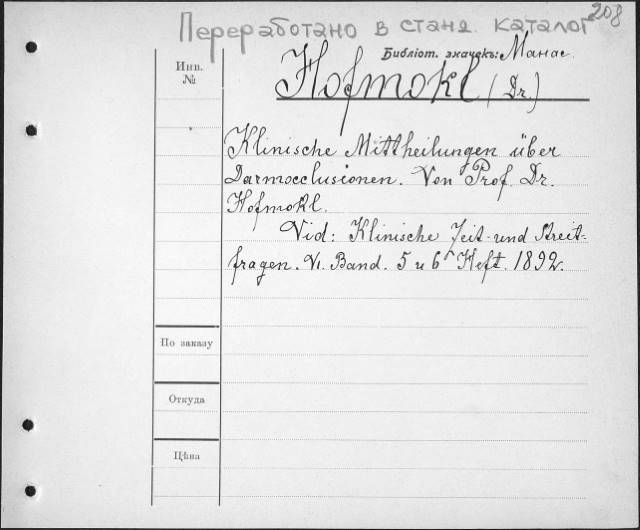 208
Переработано в станд. каталог
Библіот. значекъ: Манас.
Инв.
№
Hofmokl (Dr.)
Klinische Mittheilungen über
Darmocclusionen. Von Prof. Dr.
Hofmokl.
Vid: Klinische Zeit- und Streit-
fragen. VI. Band. 5 u 6 Heft. 1892.
По заказу
Откуда
Цѣна